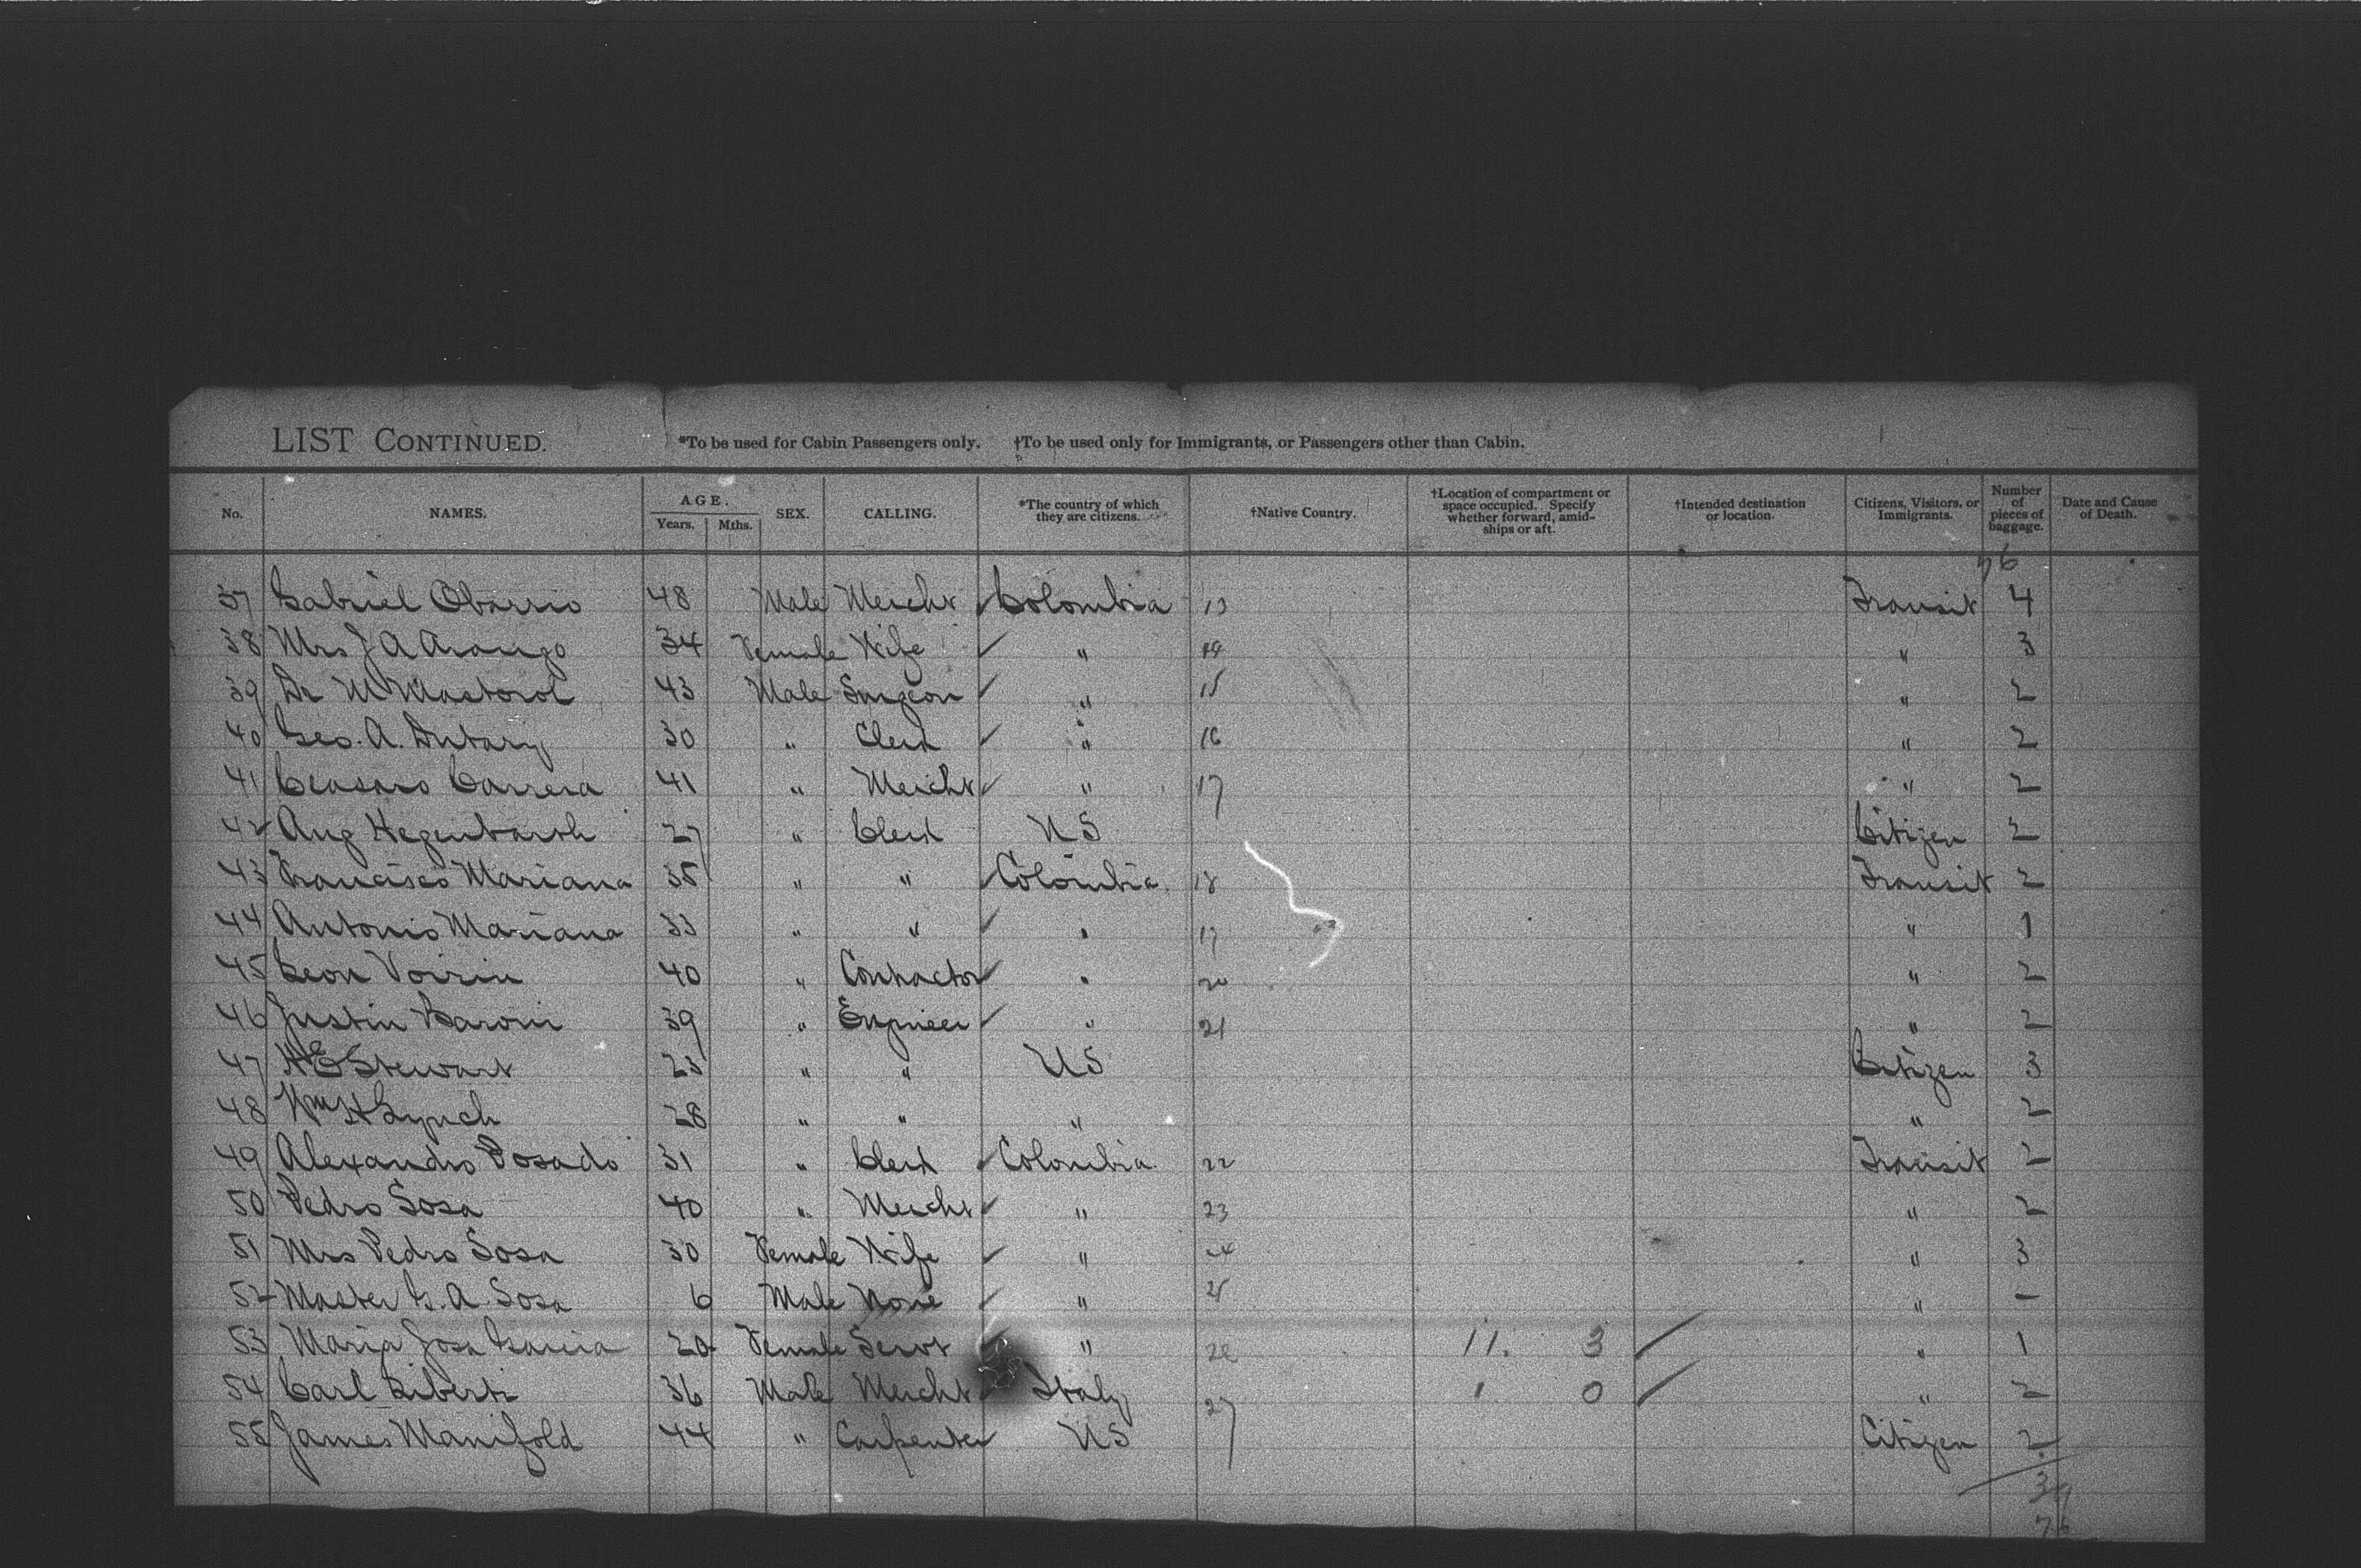 LIST CONTINUED. *To be used for Cabin Passengers only. †To be used only for Immigrants, or Passengers other than Cabin.
No. NAMES. AGE. Years. Mths. SEX. CALLING. *The country of which they are citizens. †Native Country. †Location of compartment or space occupied. Specify whether forward, amidships or aft. †Intended destination or location. Citizens, Visitors, or Immigrants. Number of pieces of baggage. Date and Cause of Death.
76
37 Gabriel Obarrio 48 Male Mercht Colombia 13 Transit 4
38 Mrs J A Arango 34 Female Wife " 14 " 3
39 Dr M 43 Male Surgeon " 15 " 2
40 Geo. A. Dutary 30 " Clerk " 16 " 2
41 Carrera 41 " Mercht " 17 " 2
42 Aug Hegenbarth 27 " Clerk US Citizen 2
43 Francisco Mariana 35 " " Colombia 18 Transit 2
44 Antonio Mariana 33 " " " 19 " 1
45 Leon Voirin 40 " Contractor " 20 " 2
46 Justin Baroni 39 " Engineer " 21 " 2
47 H E Stewart 23 " " US Citizen 3
48 Wm H Lynch 28 " " " " 2
49 Alexandro Posado 31 " Clerk Colombia 22 Transit 2
50 Pedro Sosa 40 " Mercht " 23 " 2
51 Mrs Pedro Sosa 30 Female Wife " 24 " 3
52 Master G. A. Sosa 6 Male None " 25 " –
53 Maria Josa Garcia 20 Female Servt " 26 11. 3 " 1
54 Carl Liberti 36 Male Mercht Italy 27 1 0 " 2
55 James Manifold 44 " Carpenter US Citizen 2
39
76